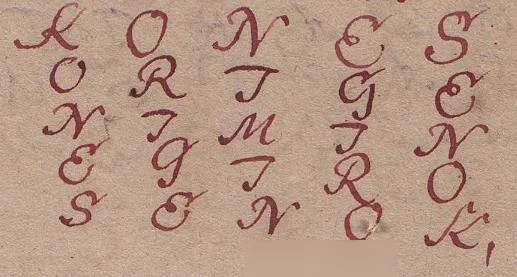 K O N E S
O R I G E
N I M I N
E G I R O
S E N O K,